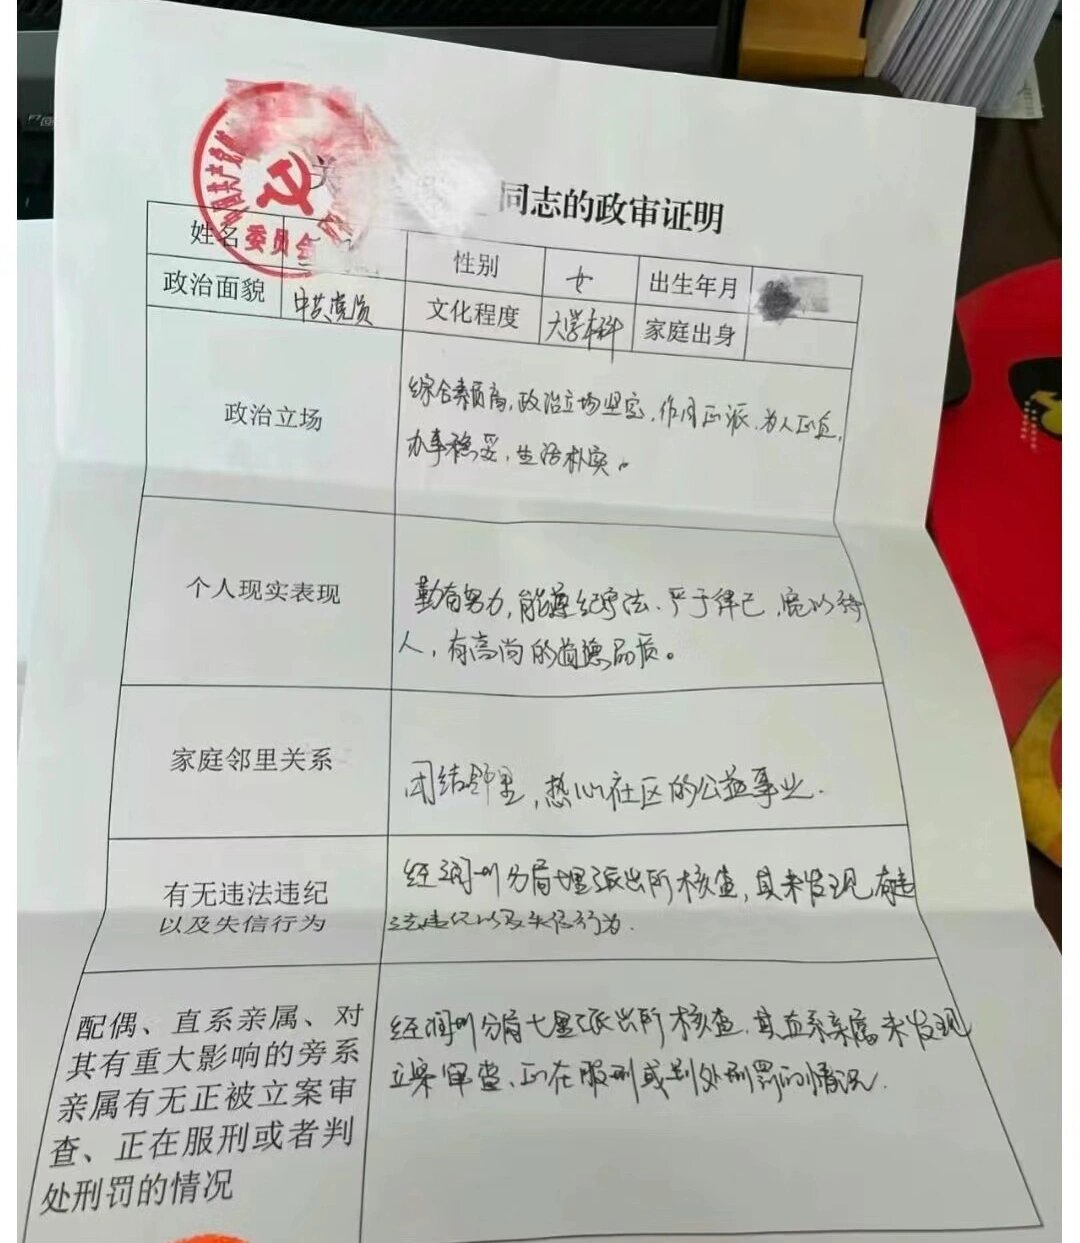 中国共产党
委员会
关
同志的政审证明
姓名
性别
女
出生年月
政治面貌
中共党员
文化程度
大学本科
家庭出身
政治立场
综合素质高，政治立场坚定，作风正派，为人正直，
办事稳妥，生活朴实。
个人现实表现
勤奋努力，能遵纪守法、严于律己，宽以待
人，有高尚的道德品质。
家庭邻里关系
团结邻里，热心社区的公益事业．
有无违法违纪
以及失信行为
经润州分局七里派出所核查，其未发现有违
法违纪以及失信行为．
配偶、直系亲属、对
其有重大影响的旁系
亲属有无正被立案审
查、正在服刑或者判
处刑罚的情况
经润州分局七里派出所核查，其直系亲属未发现
立案审查、正在服刑或判处刑罚的情况．